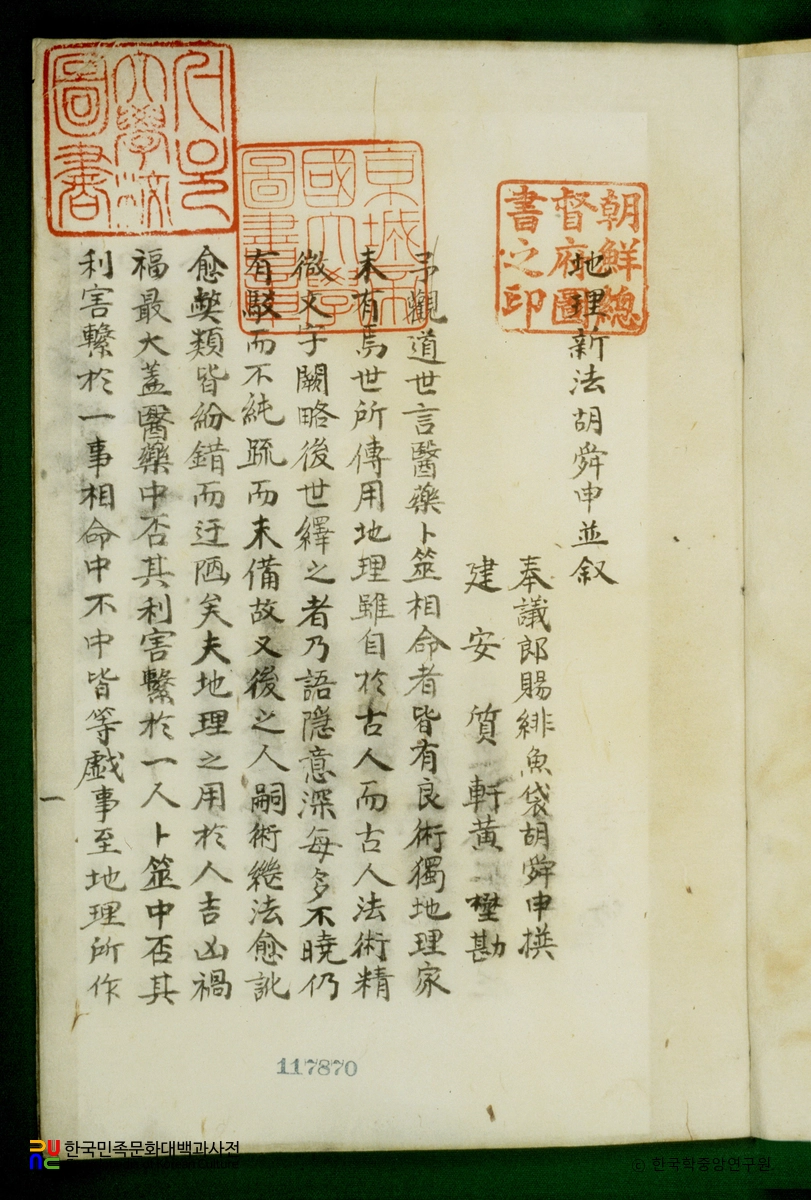 地理新法胡舜申並叙
奉議郎賜緋魚袋胡舜申撰
建安質軒黃㽔勘
予觀道世言醫藥卜筮相命者皆有良術獨地理家
未有焉世所傳用地理雖自於古人而古人法術精
微文字闕略後世繹之者乃語隱意深每多不曉仍
有駁而不純疏而未備故又後之人嗣術繼法愈訛
愈獘類皆紛錯而迂陋矣夫地理之用於人吉凶禍
福最大蓋醫藥中否其利害繫於一人卜筮中否其
利害繫於一事相命中不中皆等戱事至地理所作
一
朝鮮總
督府圖
書之印
京城帝
國大學
圖書章
서울
大學校
圖書
117870
한국민족문화대백과사전
© 한국학중앙연구원